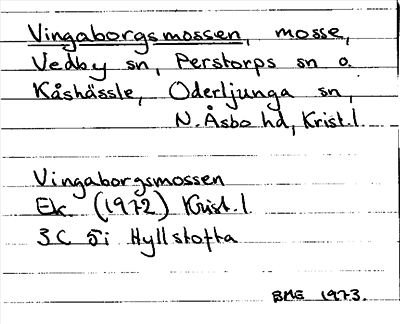 Vingaborgsmossen, mosse,
Vedby sn, Perstorps sn o.
Kåshässle, Oderljunga sn,
N. Åsbo hd, Krist.l.
Vingaborgsmossen
Ek. (1972) Krist.l
3C 5i Hyllstofta
BME 1973.